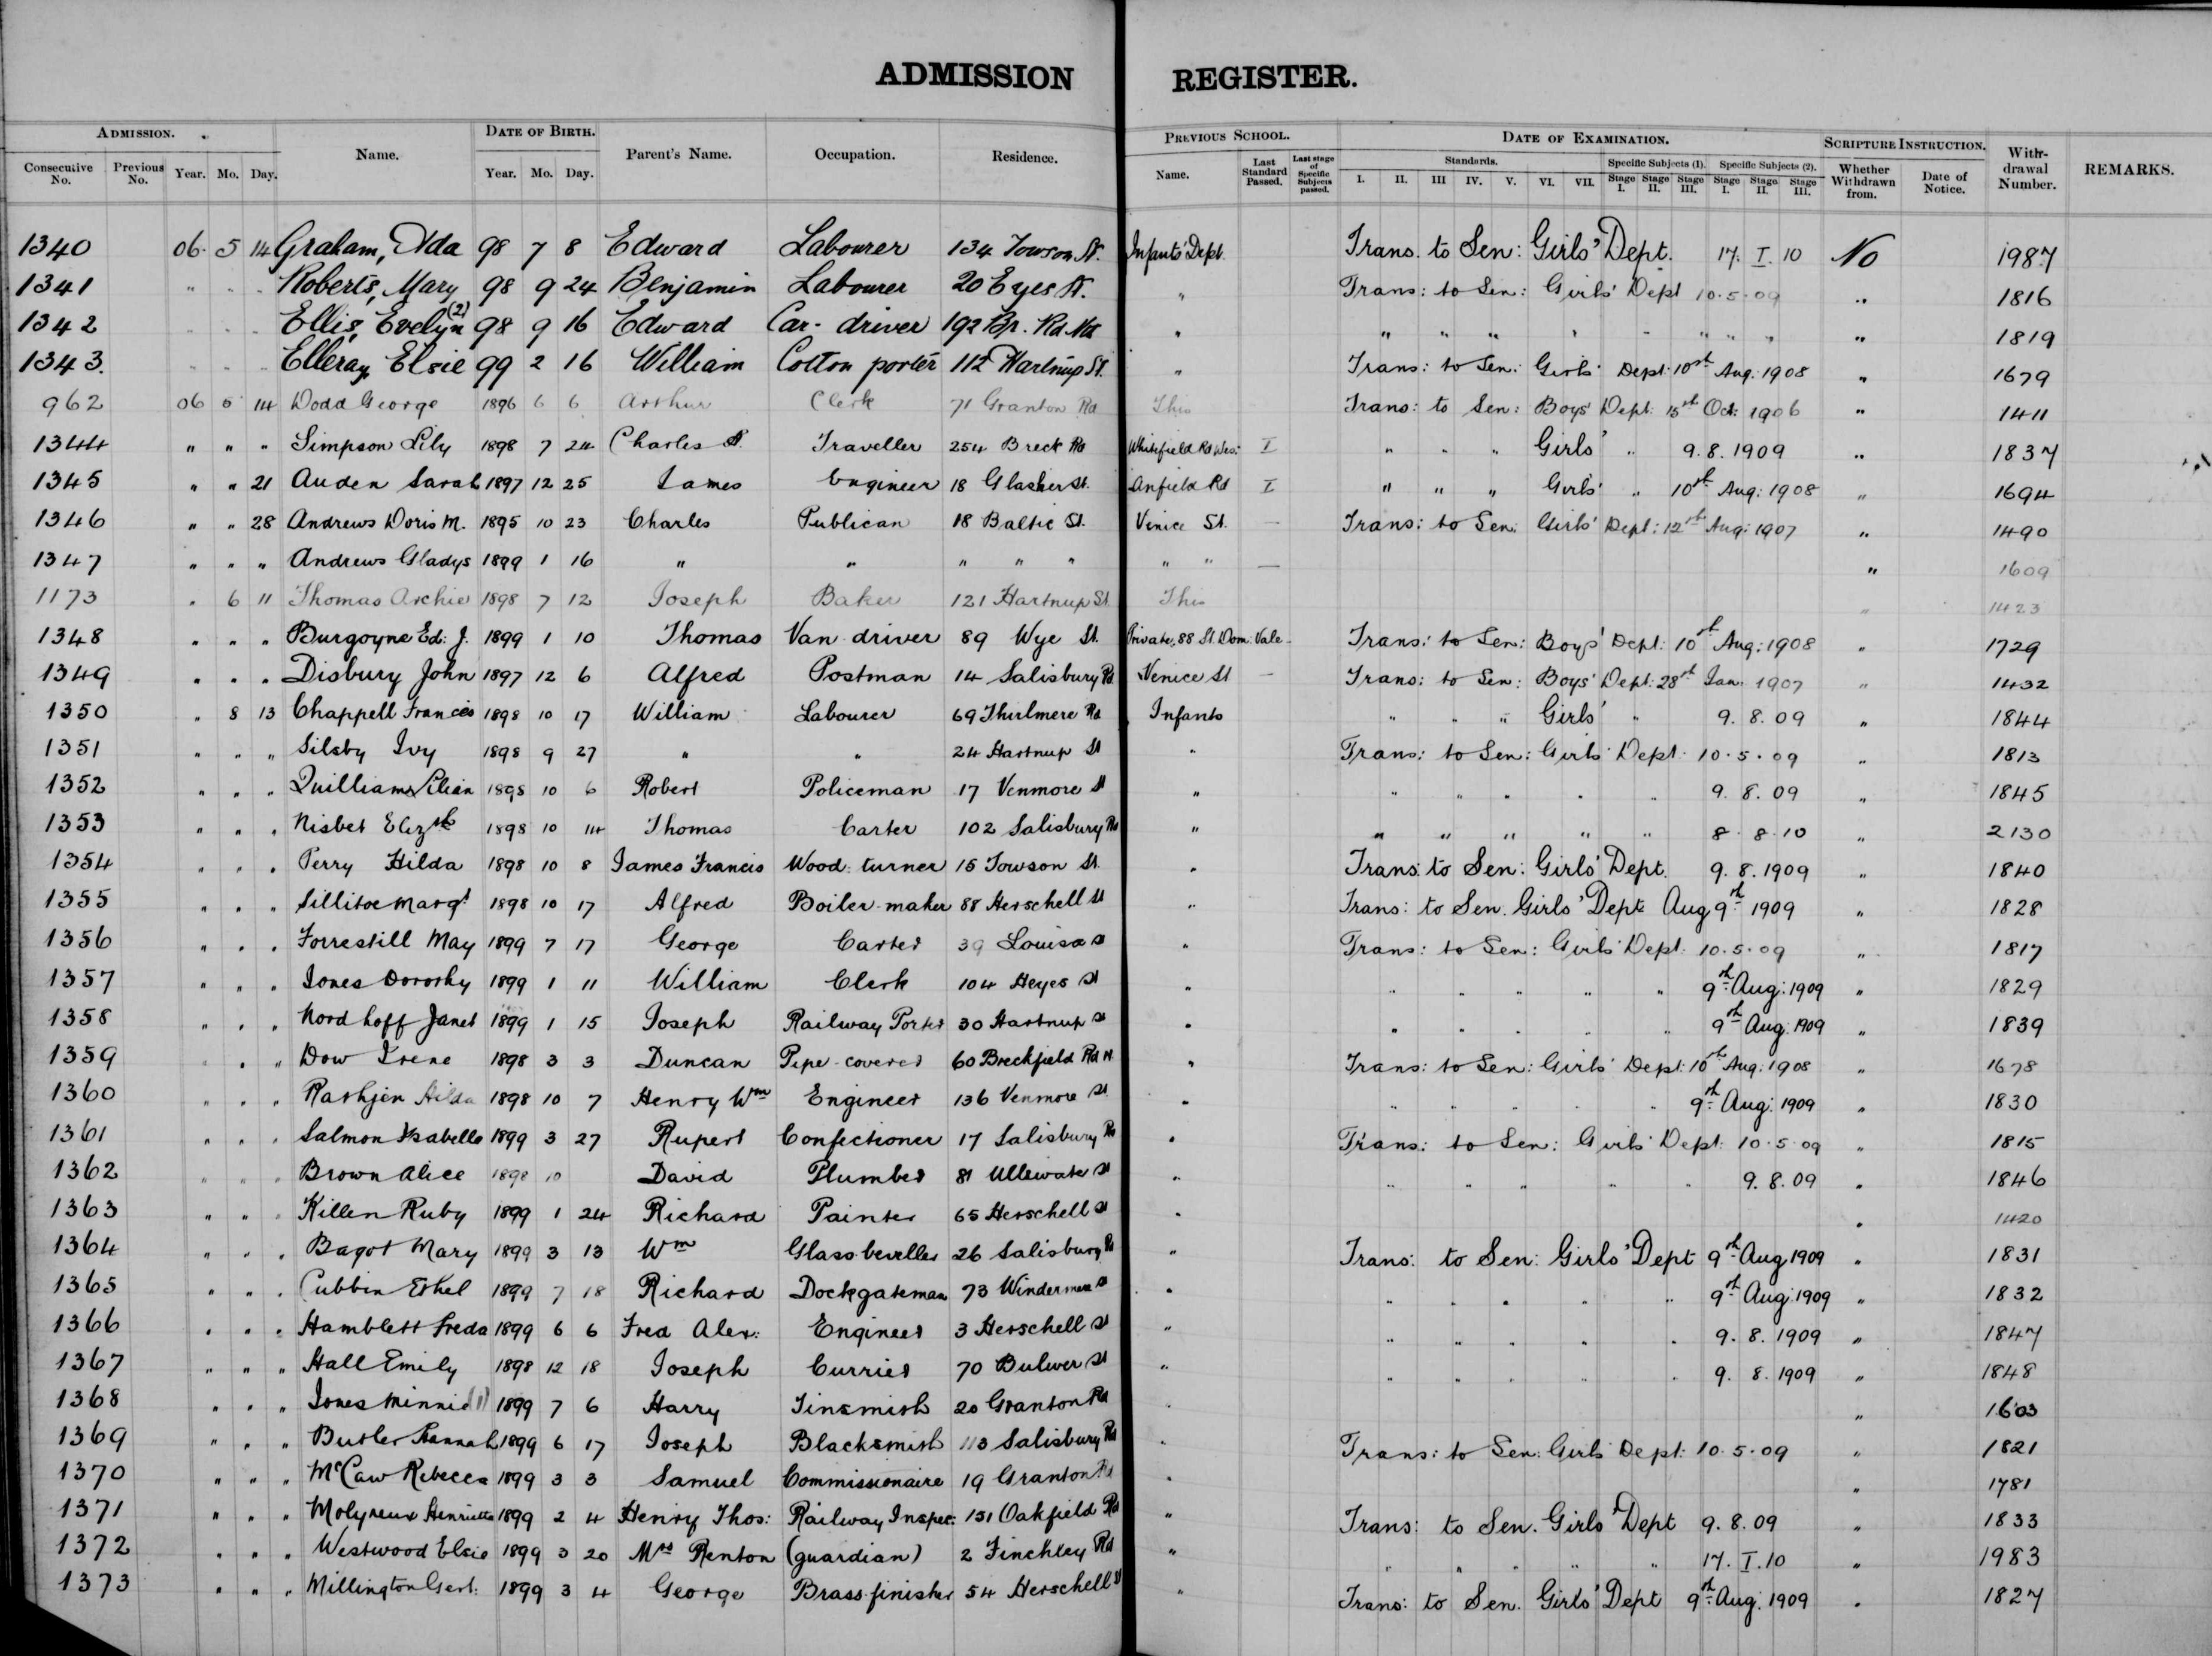 ADMISSION REGISTER.
ADMISSION. DATE OF BIRTH. PREVIOUS SCHOOL. DATE OF EXAMINATION. SCRIPTURE INSTRUCTION.
Consecutive No. Previous No. Year. Mo. Day. Name. Year. Mo. Day. Parent's Name. Occupation. Residence. Name. Last Standard Passed. Last stage of Specific Subjects passed. Standards. I. II. III IV. V. VI. VII. Specific Subjects (1). Stage I. Stage II. Stage III. Specific Subjects (2). Stage I. Stage II. Stage III. Whether Withdrawn from. Date of Notice. With-drawal Number. REMARKS.
1340 06. 5 14 Graham, Ada 98 7 8 Edward Labourer 134 Towson St. Infants' Dept. Trans. to Sen: Girls' Dept. 17. I. 10 No 1987
1341 " " " Roberts, Mary 98 9 24 Benjamin Labourer 20 Eyes St. " Trans: to Sen: Girls' Dept 10.5.09 " 1816
1342 " " " Ellis, Evelyn (2) 98 9 16 Edward Car-driver 192 Br. Rd Nth " " " " " " " " " " 1819
1343. " " " Elleray Elsie 99 2 16 William Cotton porter 112 Hartnup St. " Trans: to Sen: Girls' Dept: 10th Aug: 1908 " 1679
962 06 5 14 Dodd George 1896 6 6 Arthur Clerk 71 Granton Rd This Trans: to Sen: Boys' Dept: 15th Oct: 1906 " 1411
1344 " " " Simpson Lily 1898 7 24 Charles Traveller 254 Breck Rd Whitefield Rd Wes: I " " " Girls' " 9.8.1909 " 1837
1345 " " 21 Auden Sarah 1897 12 25 James Engineer 18 Glasier St. Anfield Rd I " " " Girls' " 10th Aug: 1908 " 1694
1346 " " 28 Andrews Doris M. 1895 10 23 Charles Publican 18 Baltic St. Venice St. — Trans: to Sen: Girls' Dept: 12th Aug: 1907 " 1490
1347 " " " Andrews Gladys 1899 1 16 " " " " " " " — " 1609
1173 " 6 11 Thomas Archie 1898 7 12 Joseph Baker 121 Hartnup St. This " 1423
1348 " " " Burgoyne Ed: J. 1899 1 10 Thomas Van driver 89 Wye St. Private, 88 St. Dom: Vale - Trans: to Sen: Boys' Dept: 10th Aug: 1908 " 1729
1349 " " " Disbury John 1897 12 6 Alfred Postman 14 Salisbury Rd. Venice St — Trans: to Sen: Boys' Dept: 28th Jan. 1907 " 1432
1350 " 8 13 Chappell Frances 1898 10 17 William Labourer 69 Thirlmere Rd Infants " " " Girls' " 9.8.09 " 1844
1351 " " " Silsby Ivy 1898 9 27 " " 24 Hartnup St " Trans: to Sen: Girls' Dept: 10.5.09 " 1813
1352 " " " Quilliam Lilian 1898 10 6 Robert Policeman 17 Venmore St " " " " " " 9.8.09 " 1845
1353 " " " Nisbet Elizth 1898 10 14 Thomas Carter 102 Salisbury Rd " " " " " " 8.8.10 " 2130
1354 " " " Perry Hilda 1898 10 8 James Francis Wood-turner 15 Towson St. " Trans: to Sen: Girls' Dept. 9.8.1909 " 1840
1355 " " " Sillitoe Margt 1898 10 17 Alfred Boiler-maker 88 Herschell St " Trans: to Sen. Girls' Dept Aug 9th 1909 " 1828
1356 " " " Forrestill May 1899 7 17 George Carter 39 Louisa St " Trans: to Sen: Girls' Dept: 10.5.09 " 1817
1357 " " " Jones Dorothy 1899 1 11 William Clerk 104 Heyes St " " " " " " 9th Aug: 1909 " 1829
1358 " " " Nordhoff Janet 1899 1 15 Joseph Railway Porter 30 Hartnup St " " " " " " 9th Aug: 1909 " 1839
1359 " " " Dow Irene 1898 3 3 Duncan Pipe-coverer 60 Breckfield Rd N. " Trans: to Sen: Girls' Dept: 10th Aug: 1908 " 1678
1360 " " " Rathjen Hilda 1898 10 7 Henry Wm Engineer 136 Venmore St. " " " " " " 9th Aug: 1909 " 1830
1361 " " " Salmon Isabella 1899 3 27 Rupert Confectioner 17 Salisbury Rd " Trans: to Sen: Girls' Dept: 10.5.09 " 1815
1362 " " " Brown Alice 1898 10 David Plumber 81 Ullswater St " " " " " " 9.8.09 " 1846
1363 " " " Killen Ruby 1899 1 24 Richard Painter 65 Herschell St " " 1420
1364 " " " Bagot Mary 1899 3 13 Wm Glass-beveller 26 Salisbury Rd " Trans: to Sen: Girls' Dept 9th Aug 1909 " 1831
1365 " " " Cubbin Ethel 1899 7 18 Richard Dockgateman 73 Windermere St " " " " " " 9th Aug: 1909 " 1832
1366 " " " Hamblett Freda 1899 6 6 Fred Alex: Engineer 3 Herschell St " " " " " " 9.8.1909 " 1847
1367 " " " Hall Emily 1898 12 18 Joseph Currier 70 Bulwer St " " " " " " 9.8.1909 " 1848
1368 " " " Jones Minnie (1) 1899 7 6 Harry Tinsmith 20 Granton Rd " " 1603
1369 " " " Butler Hannah 1899 6 17 Joseph Blacksmith 113 Salisbury Rd " Trans: to Sen: Girls' Dept: 10.5.09 " 1821
1370 " " " McCaw Rebecca 1899 3 3 Samuel Commissionaire 19 Granton Rd " " 1781
1371 " " " Molyneux Henrietta 1899 2 4 Henry Thos: Railway Inspec: 151 Oakfield Rd " Trans: to Sen. Girls' Dept 9.8.09 " 1833
1372 " " " Westwood Elsie 1899 3 20 Mrs Renton (guardian) 2 Finchley Rd " " " " " " 17.I.10 " 1983
1373 " " " Millington Gert: 1899 3 4 George Brass-finisher 54 Herschell St " Trans: to Sen. Girls' Dept 9th Aug: 1909 " 1827